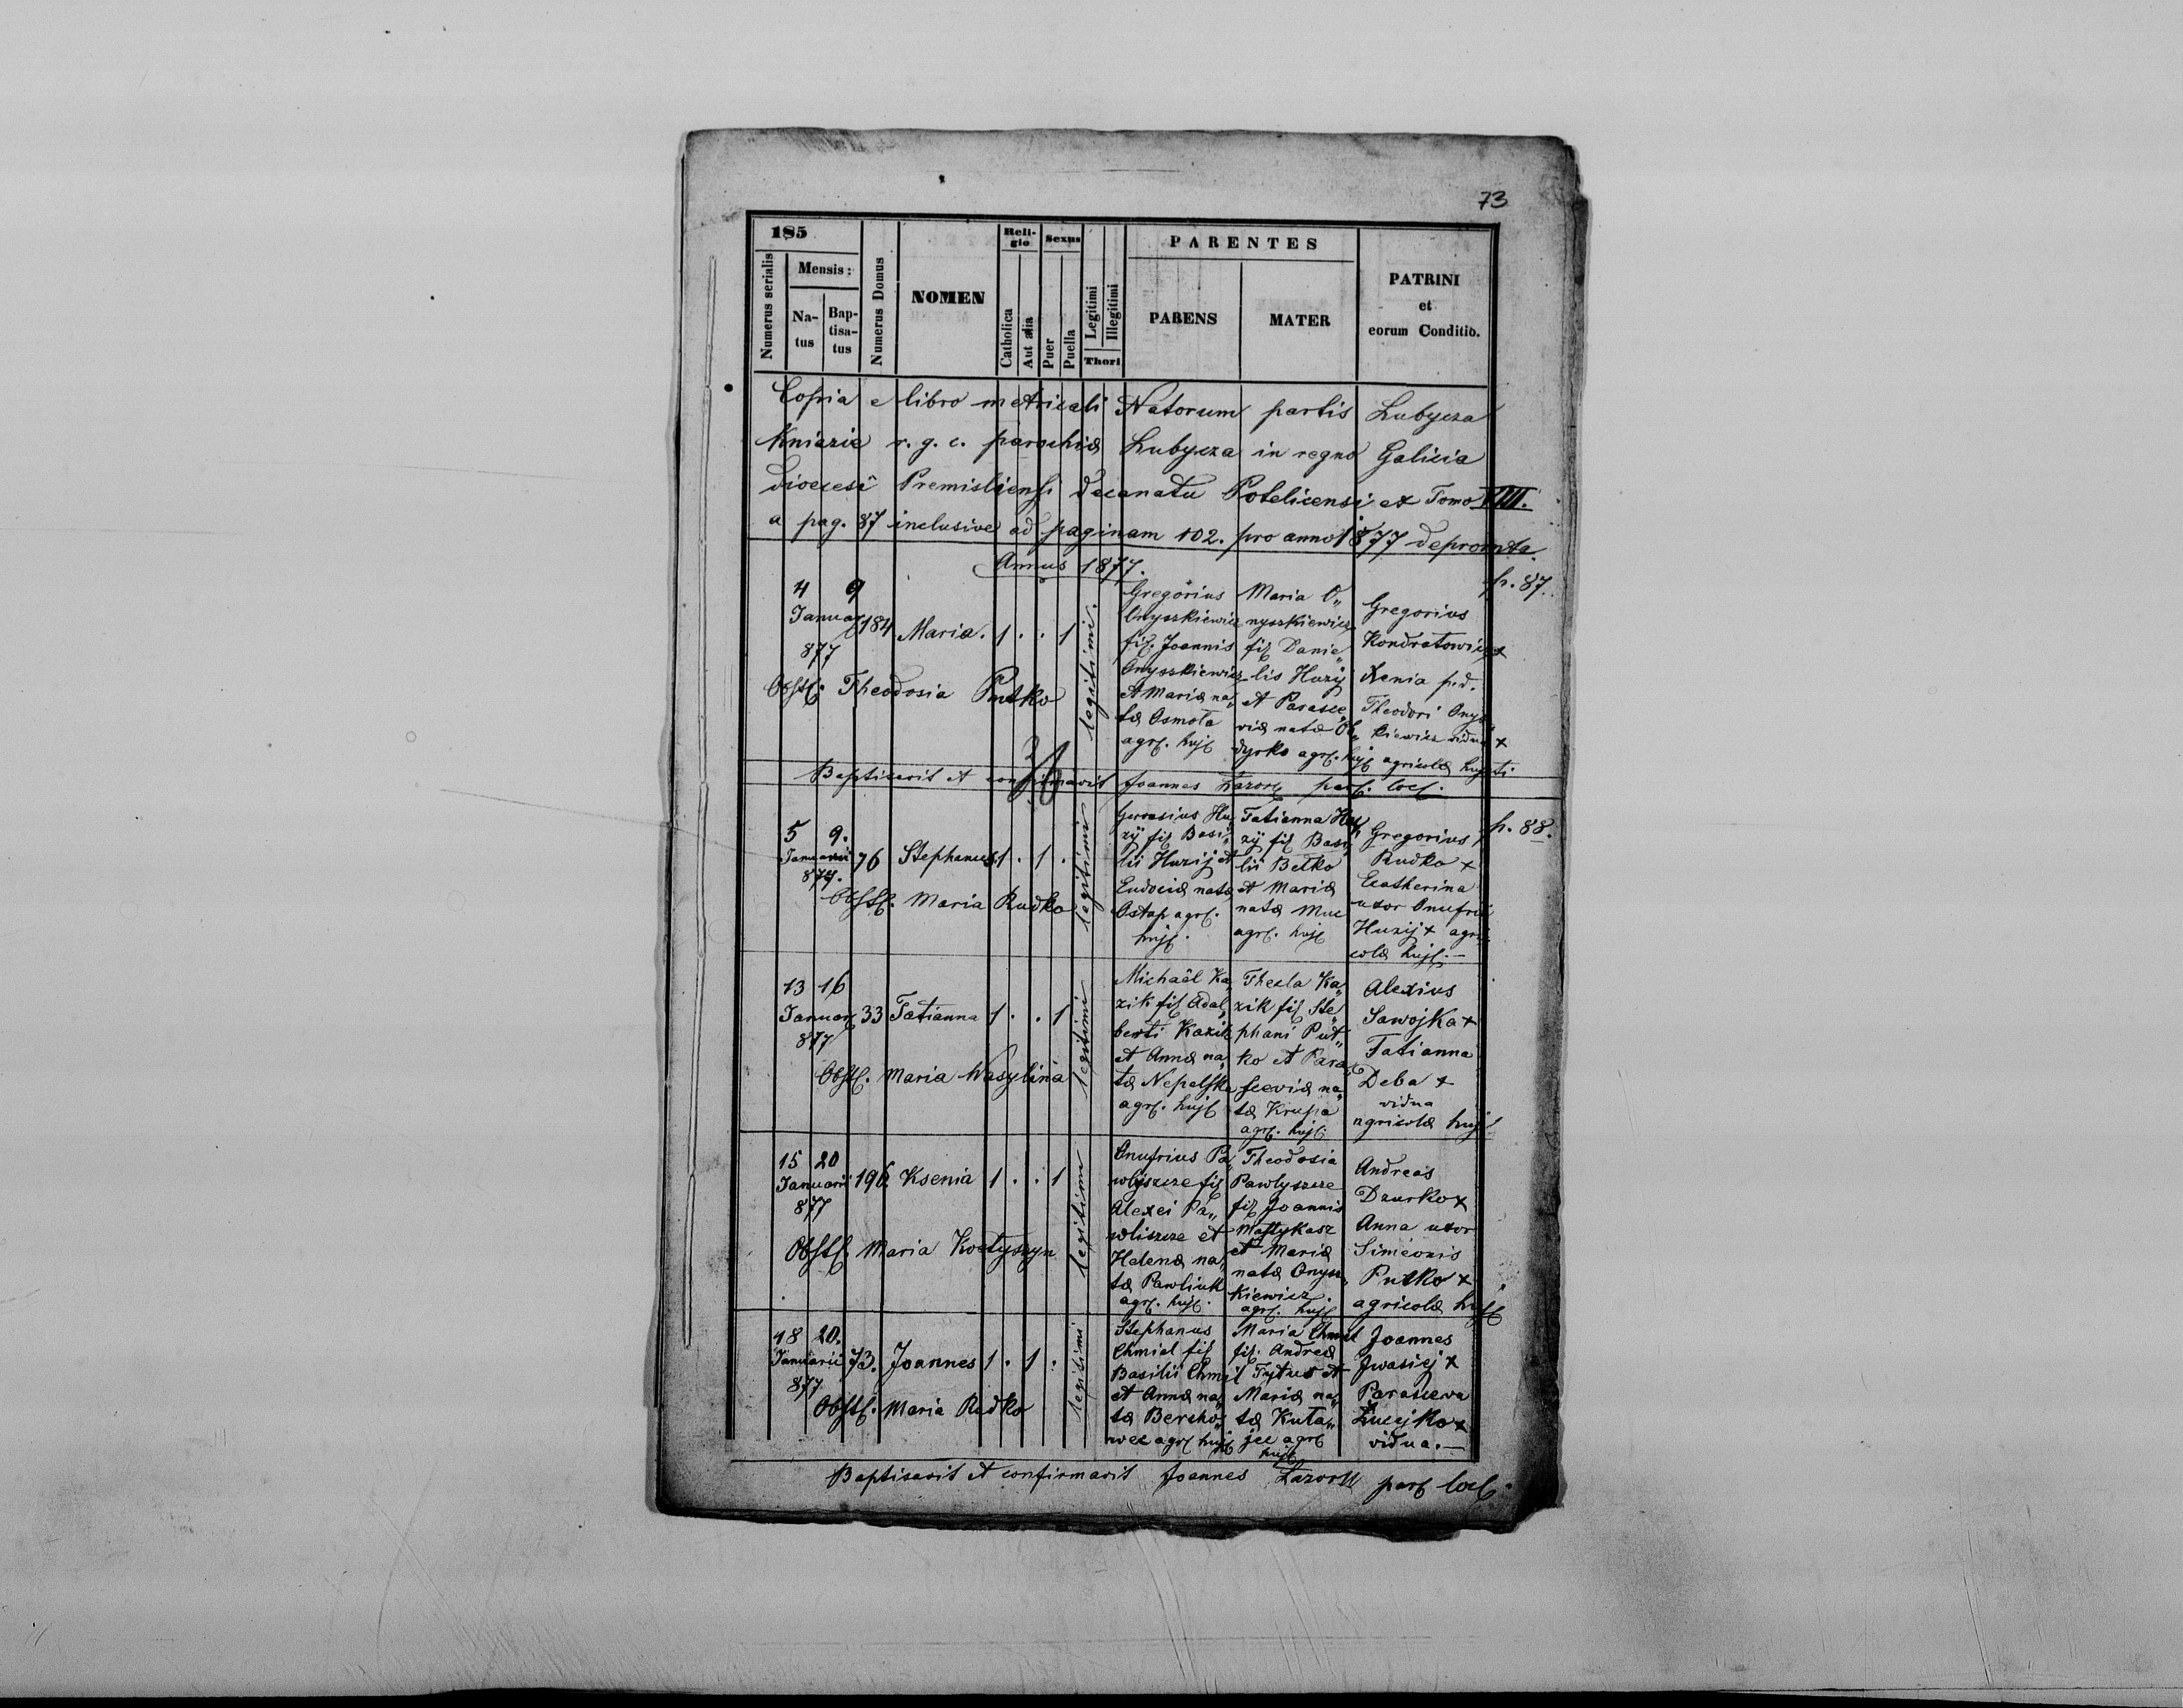 73
185
Numerus serialis
Mensis:
Na-
tus
Bap-
tisa-
tus
Numerus Domus
NOMEN
Reli-
gio
Catholica
Aut alia
Sexus
Puer
Puella
Legitimi
Illegitimi
Thori
PARENTES
PARENS
MATER
PATRINI
et
eorum Conditio.
Copia e libro metricali Natorum partis Lubycza
Kniazie r. g. c. parochiæ Lubycza in regno Galicia
Dioecesi Premisliensi decanatu Potelicensi et Tomo VIII.
a pag. 87 inclusive ad paginam 102. pro anno 1877 depromta.
Annus 1877.
p. 87.
4 9
Januar 184 Maria. 1 . . 1
877
Obst. Theodosia Putko
legitimi.
Gregorius
Onyszkiewicz
fil. Joannis
Onyszkiewicz
et Mariæ na„
tæ Osmota
agr. huj
Maria O„
nyszkiewicz
fil Danie„
lis Huzij
et Parasce„
viæ natæ Ol„
dyrko agr. huj
Gregorius
Kondratowicz x
Xenia p.d.
Theodori Onysz
kiewicz vidua x
agricolæ huj
Baptisavit et confirmavit Joannes Lazor par. loc.
p. 88.
5 9.
Januarii 76 Stephanus. 1 . 1 .
877.
Obst. Maria Rudko
legitimi
Gervasius Hu„
zij fil Basi„
lii Huzij et
Eudociæ natæ
Ostap agr.
huj.
Tatianna Hu„
zij fil Basi„
lii Betko
et Mariæ
natæ Muc
agr. huj
Gregorius
Rudko x
Ecatherina
uxor Onufrii
Huzij x agri
colæ huj. —
13 16
Januar 33 Tatianna 1 . . 1
877
Obst. Maria Wasylina
legitimi
Michaël Ka„
zik fil Adal„
berti Kazik
et Annæ na„
tæ Nepelska
agr. huj
Thecla Ka„
zik fil Ste„
phani Put„
ko et Para„
sceviæ na„
tæ Krupa
agr. huj.
Alexius
Sawojka x
Tatianna
Deba x
vidua
agricolæ huj
15 20
Januarii 196 Ksenia 1 . . 1
877
Obst. Maria Kostyszyn
legitimi
Onufrius Pa„
wlyszcze fil
Alexei Pa„
wliszcze et
Helenæ na„
tæ Pawliuk
agr. huj.
Theodosia
Pawlyszcze
fil Joannis
Mastykasz
et Mariæ
natæ Onysz„
kiewicz.
agr. huj
Andreas
Dzurko x
Anna uxor
Simeonis
Putko x
agricolæ huj
18 20.
Januarii 73. Joannes 1 . 1 .
877
Obst. Maria Rudko
legitimi
Stephanus
Chmiel fil
Basilii Chmil
et Annæ na„
tæ Bercho„
wec agr huj
Maria Chmil
fil. Andreæ
Tytus et
Mariæ na„
tæ Kuta„
jec agr
huj
Joannes
Iwasiej x
Parascewa
Łucejko x
vidua. —
Baptisavit et confirmavit Joannes Lazor par loc.